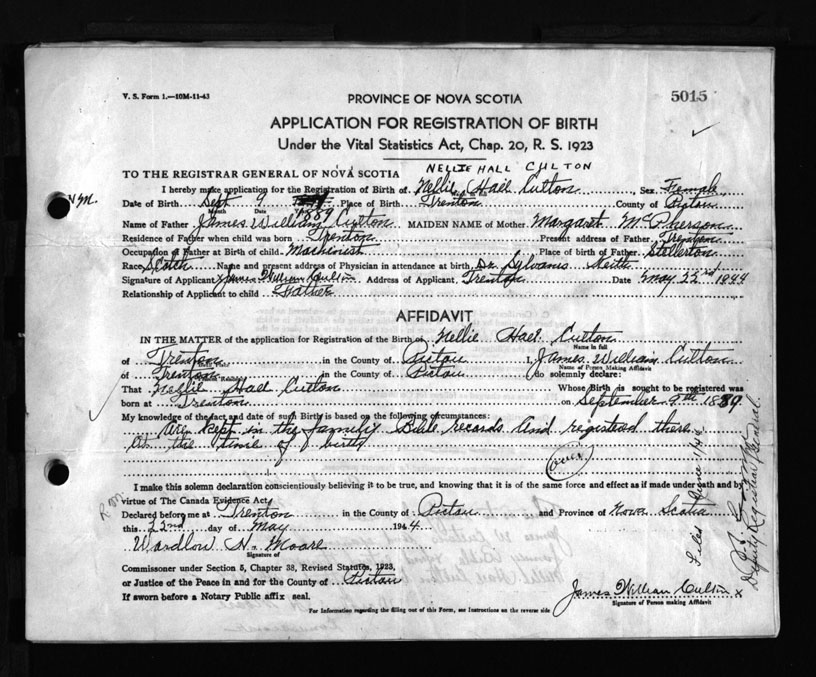 V. S. Form 1.—10M-11-43
PROVINCE OF NOVA SCOTIA
5015
APPLICATION FOR REGISTRATION OF BIRTH
Under the Vital Statistics Act, Chap. 20, R. S. 1923
NELLIE HALL CULTON
TO THE REGISTRAR GENERAL OF NOVA SCOTIA
I hereby make application for the Registration of Birth of Nellie Hall Culton, Sex Female
Date of Birth Sept 9 1889 Place of Birth Trenton County of Pictou
Month Date
Name of Father James William Culton MAIDEN NAME of Mother Margaret McPherson
Residence of Father when child was born Trenton Present address of Father Trenton
Occupation of Father at Birth of child Machinist Place of birth of Father Stellerton
Race Scotch Name and present address of Physician in attendance at birth Dr Sylvanis Keith
Signature of Applicant James William Culton Address of Applicant Trenton Date May 22nd 1944
Relationship of Applicant to child Father
AFFIDAVIT
IN THE MATTER of the application for Registration of the Birth of Nellie Hall Culton
Name in full
of Trenton in the County of Pictou I, James William Culton
Name of Person Making Affidavit
of Trenton in the County of Pictou do solemnly declare:
That Nellie Hall Culton Whose Birth is sought to be registered was
born at Trenton on September 9th 1889
My knowledge of the fact and date of such Birth is based on the following circumstances:
are kept in the family Bible records and registered there
at the time of birth
(over)
I make this solemn declaration conscientiously believing it to be true, and knowing that it is of the same force and effect as if made under oath and by
virtue of The Canada Evidence Act.
Declared before me at Trenton in the County of Pictou and Province of Nova Scotia
this 22nd day of May 1944
Wardlow H. Moore
Signature of
Commissioner under Section 5, Chapter 38, Revised Statutes, 1923,
or Justice of the Peace in and for the County of Pictou
If sworn before a Notary Public affix seal.
James William Culton x
Signature of Person making Affidavit
For Information regarding the filling out of this Form, see Instructions on the reverse side
Filed June 1/44
Deputy Registrar General